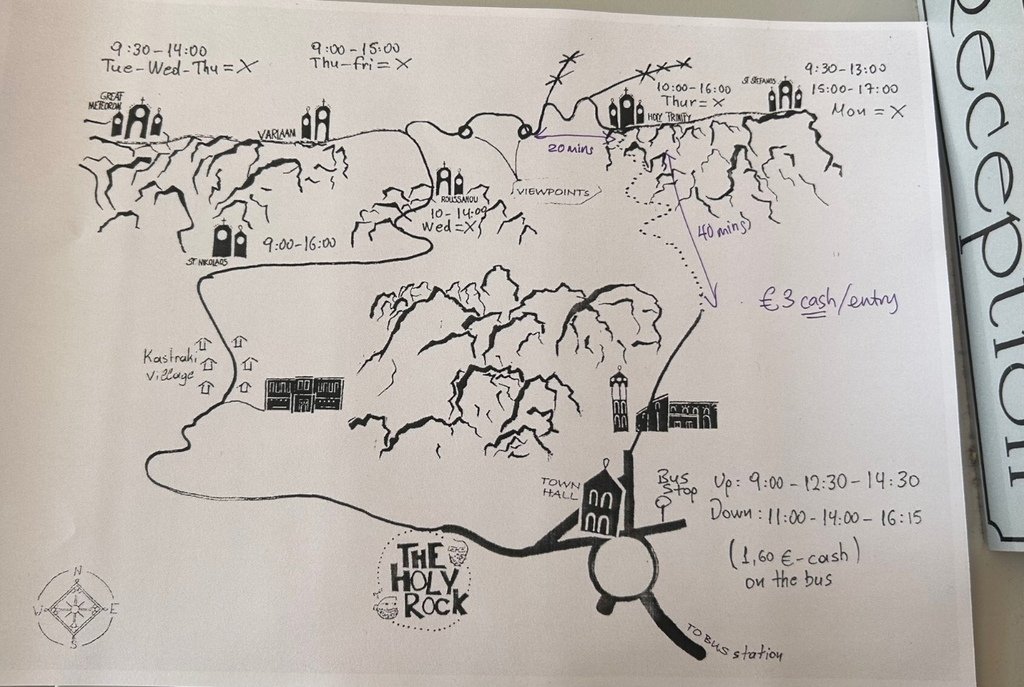 9:30-14:00
Tue-Wed-Thu = X
9:00-15:00
Thu-fri = X
GREAT
METEORON
VARLAAN
10:00-16:00
Thur = X
HOLY TRINITY
ST STEFANOS
9:30-13:00
15:00-17:00
Mon = X
20 mins
VIEWPOINTS
ROUSSANOU
10-14:00
Wed = X
ST. NIKOLAOS
9:00-16:00
40 mins
€3 cash/entry
Kastraki
village
TOWN
HALL
BUS
Stop
Up: 9:00 - 12:30 - 14:30
Down: 11:00 - 14:00 - 16:15
(1,60 €- cash)
on the bus
THE
HOLY
ROCK
N
W
E
S
TO BUS station
Reception